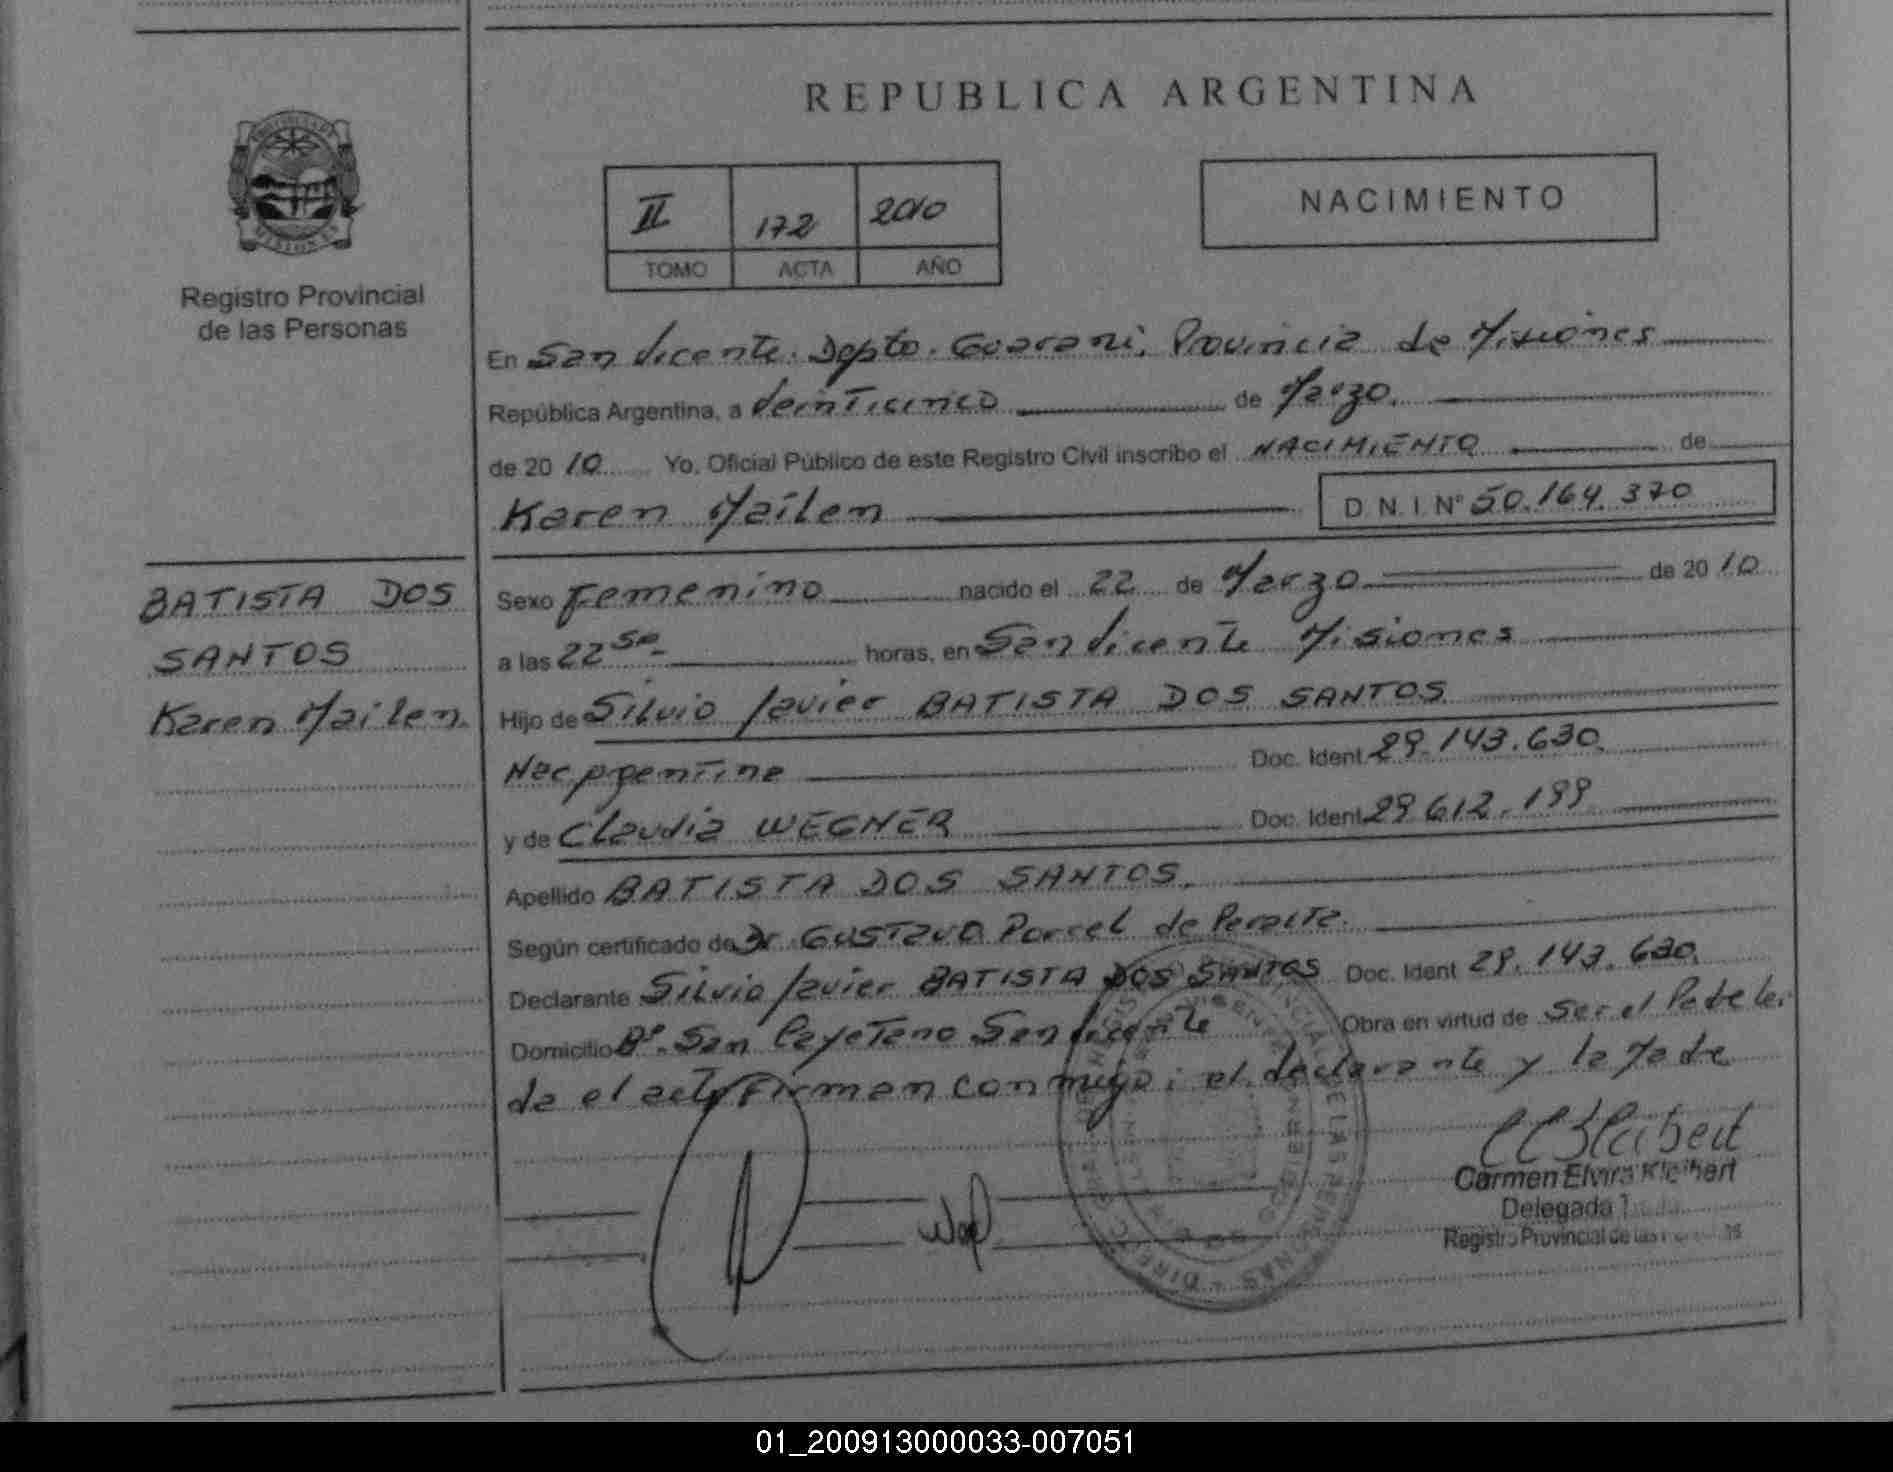 REPUBLICA ARGENTINA
PROVINCIA DE
MISIONES
Registro Provincial
de las Personas
II 172 2010
TOMO ACTA AÑO
NACIMIENTO
En San Vicente. Depto. Guarani, Provincia de Misiones
República Argentina, a Veinticinco de Marzo.
de 2010 Yo, Oficial Público de este Registro Civil inscribo el NACIMIENTO de
Karen Maílen D.N.I. Nº 50.164.370
BATISTA DOS
SANTOS
Karen Maílen.
Sexo Femenino nacido el 22 de Marzo de 2010
a las 22 50 horas, en San Vicente Misiones
Hijo de Silvio Javier BATISTA DOS SANTOS
Nac Argentina Doc. Ident. 29.143.630.
y de Claudia WEGNER Doc. Ident. 29 612.199
Apellido BATISTA DOS SANTOS.
Según certificado de Dr GUSTAVO Porcel de Peralta.
Declarante Silvio Javier BATISTA DOS SANTOS Doc. Ident 29.143.630.
Domicilio Bº. San Cayetano San Vicente Obra en virtud de Ser el Padre lei
da el acta Firman conmigo: el declarante y la Madre
Carmen Elvira Kleibert
Delegada
Registro Provincial de las Personas
01_200913000033-007051